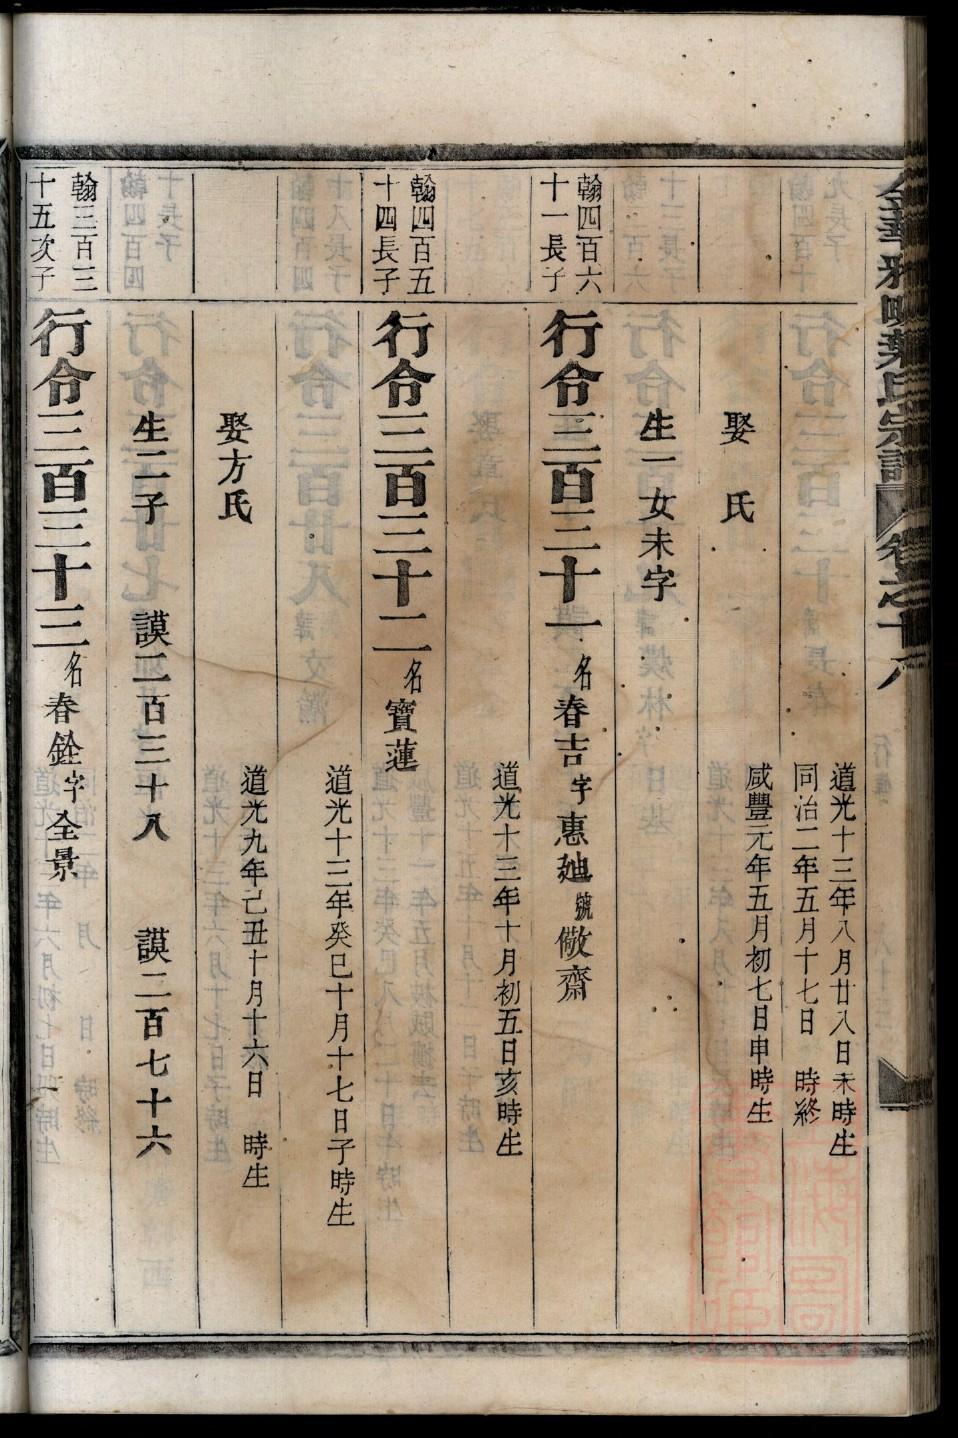 道光十三年八月廿八日未時生
同治二年五月十七日　時終
娶　氏
咸豐元年五月初七日申時生
生一女未字
翰四百六
十一長子
行令三百三十一
名春吉字惠廸號儆齋
道光十三年十月初五日亥時生
翰四百五
十四長子
行令三百三十二
名寶蓮
道光十三年癸巳十月十七日子時生
娶方氏
道光九年己丑十月十六日　時生
生二子　謨二百三十八　謨二百七十六
翰三百三
十五次子
行令三百三十三
名春銓字全景